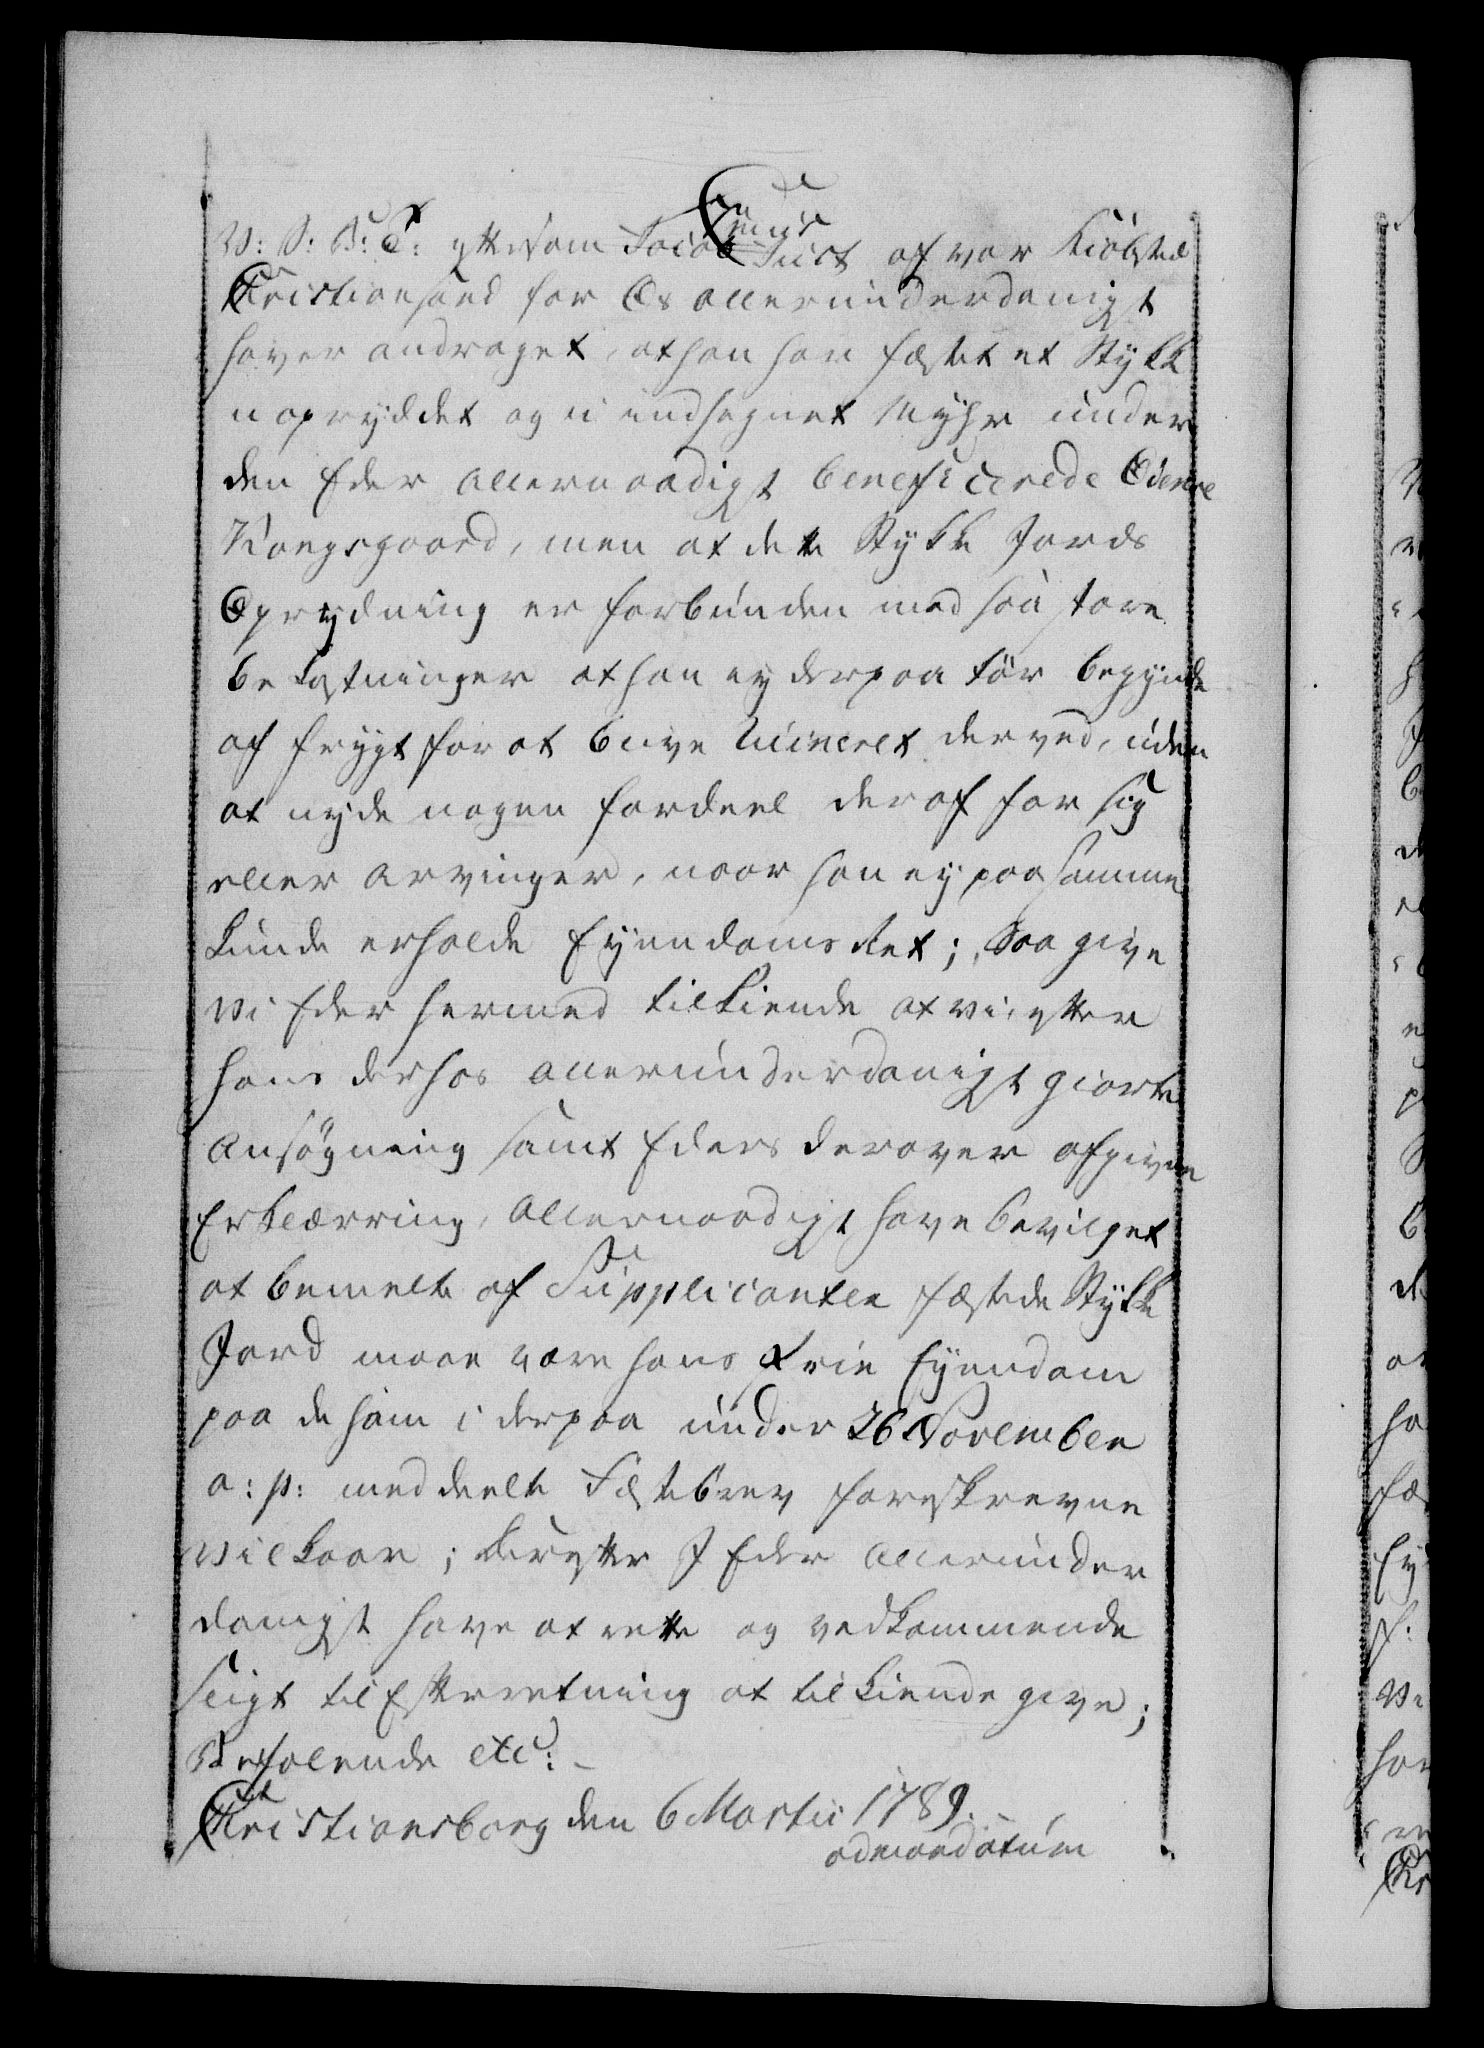 W: S: B: T: Eftersom Jacob Just af vor Kiøbsted
Christiansand for Os allerunderdanigst
haver andraget, at han har fæstet et Stykke
uopryddet og uindhegnet Myhr under
den Eder allernaadigst beneficerede Oderøe
Kongsgaard, men at dette Stykke Jords
Oprydning er forbunden med saa store
bekostninger at han ey derpaa tør begynde
af frygt for at blive Ruineret derved, uden
at nyde nogen fordeel deraf for sig
eller Arvinger, naar han ey paa samme
kunde erholde Eyendoms Ret; Saa give
Vi Eder hermed tilkiende at vi, efter
hans derhos allerunderdanigst giorte
Ansøgning samt Eders derover afgivne
Erklærring, allernaadigst have bevilget
at bemelte af Supplicanten fæstede Stykke
Jord maae være hans frie Eyendom
paa de ham i derpaa under 26 November
a: p: meddeelte Fæstebrev foreskrevne
Vilkaar; Derefter I Eder allerunder
danigst have at rette og vedkommende
sligt til Efterretning at tilkiende give;
Befalende etc: -
Christiansborg den 6 Martii 1789. -
ad mandatum